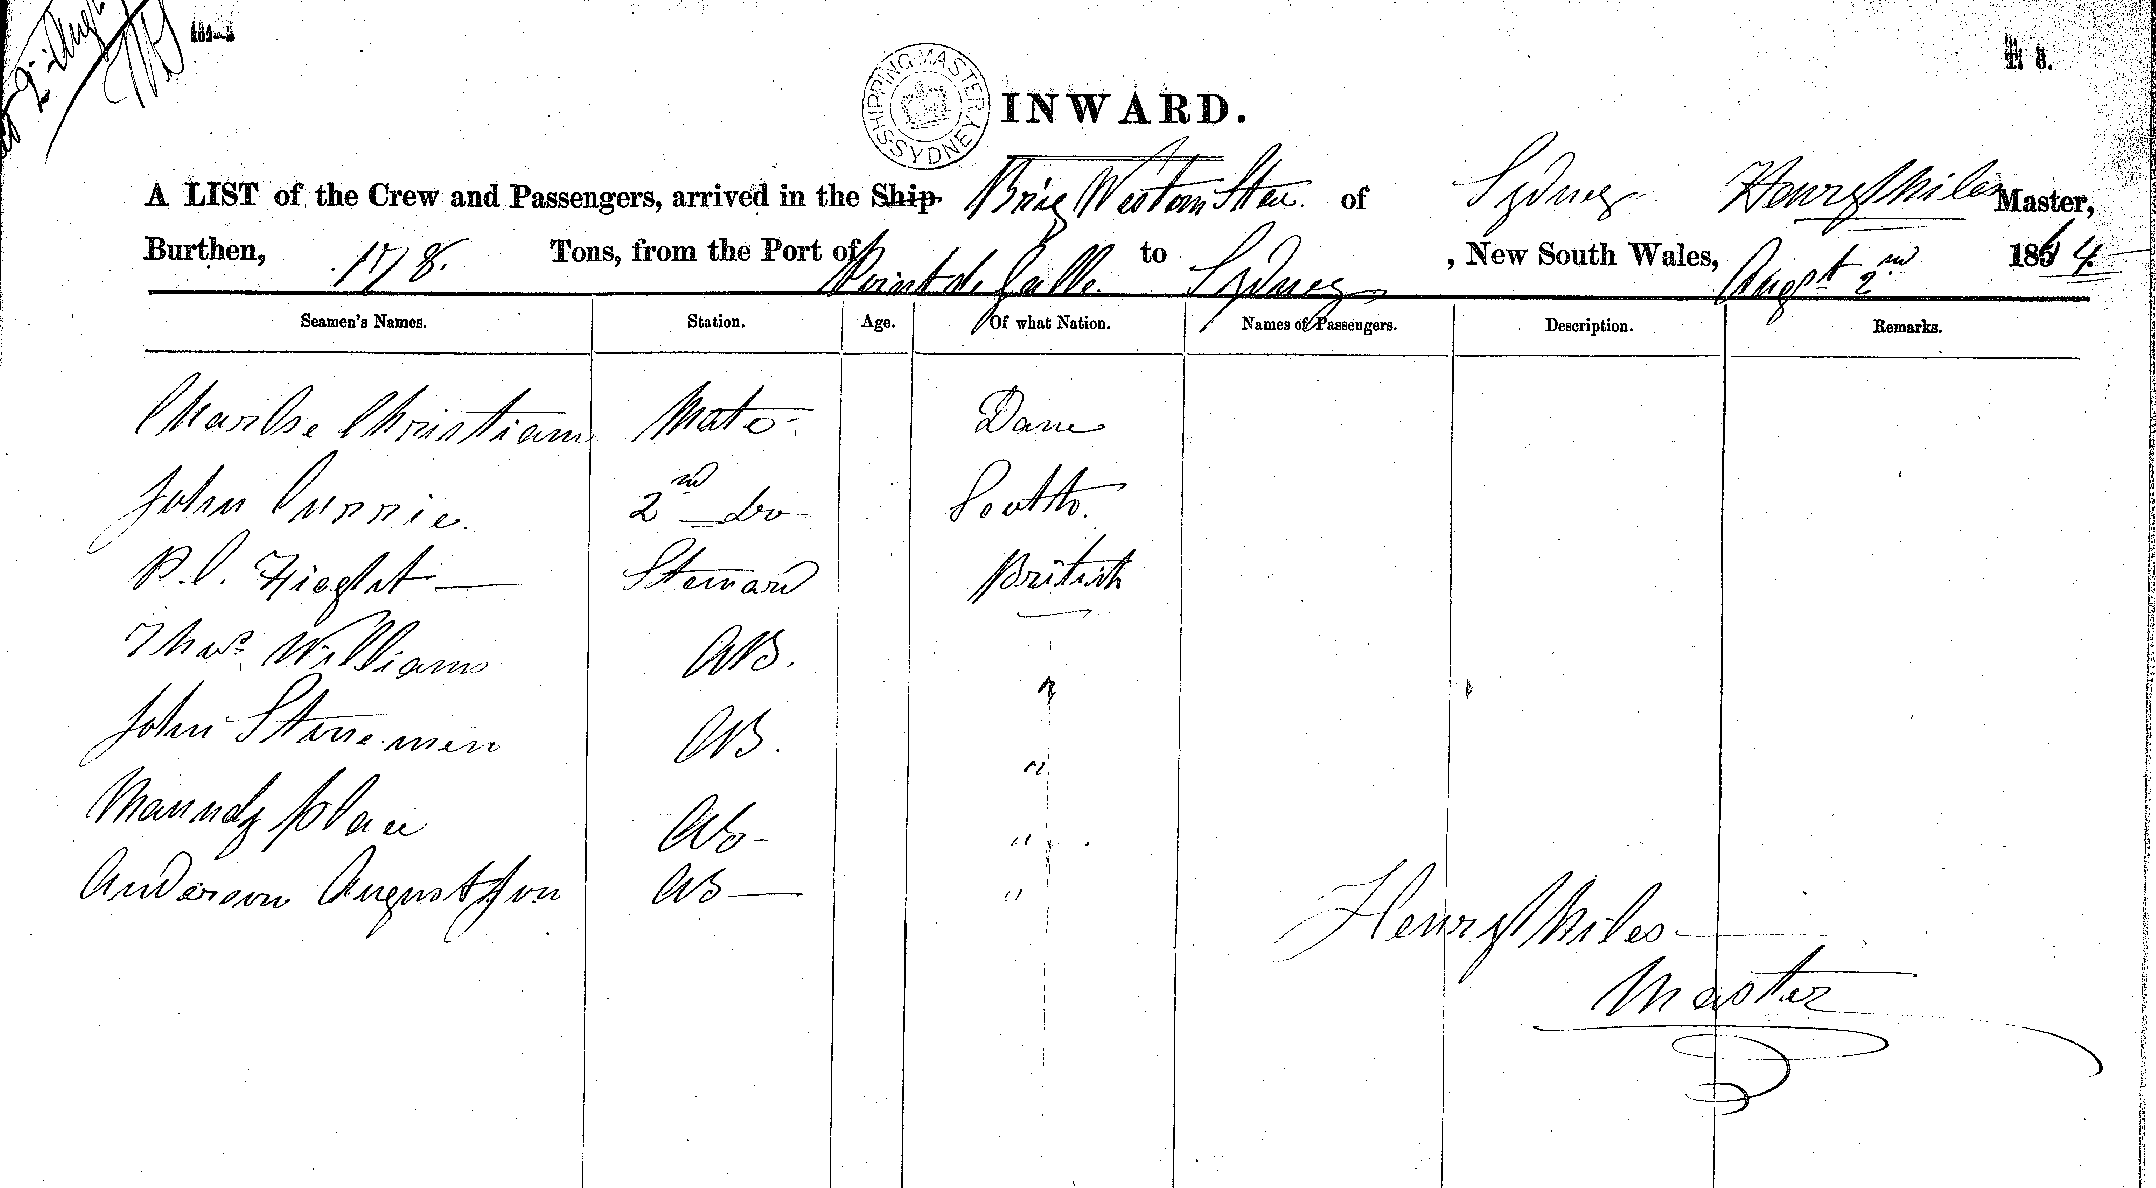 2 Augt
SHIPPING MASTER SYDNEY
INWARD.
A LIST of the Crew and Passengers, arrived in the Ship Brig Western Star of Sydney Henry Miles Master,
Burthen, 178. Tons, from the Port of Point de Galle. to Sydney, New South Wales, Augst 2nd 1864.
Seamen's Names. Station. Age. Of what Nation. Names of Passengers. Description. Remarks.
Charlse Christians Mate Dane
John Currie. 2nd do Scotth.
P.C. Steward British
Thos. Williams AB. "
John AB. "
AB "
Anderson Augustson AB "
Henry Miles
Master